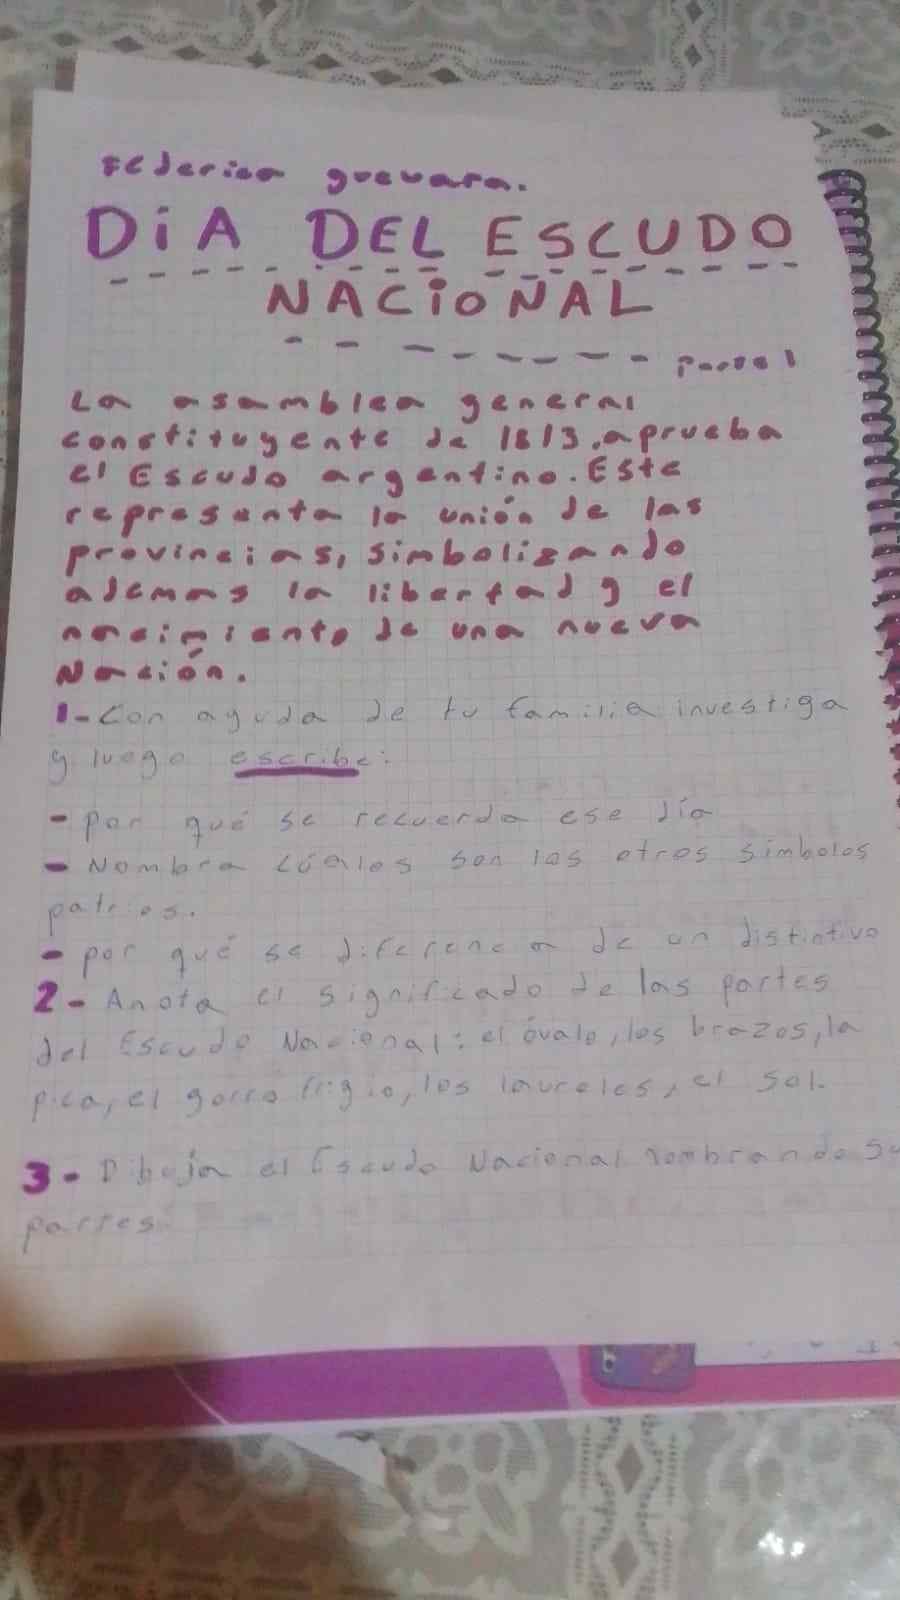 Federico guevara.
DiA DEL ESCUDO
NACiONAL
Parte 1
La asamblea general
constituyente de 1813, aprueba
el Escudo argentino. Este
representa la unión de las
provincias, simbolizando
ademas la libertad y el
nacimiento de una nueva
Nación.
1- Con ayuda de tu familia investiga
y luego escribe:
- por qué se recuerda ese día
- Nombra cúales son los otros símbolos
patrios.
- por qué se diferencia de un distintivo
2- Anota el significado de las partes
del Escudo Nacional: el óvalo, los brazos, la
pica, el gorro frigio, los laureles, el sol.
3- Dibuja el Escudo Nacional nombrando su
partes.